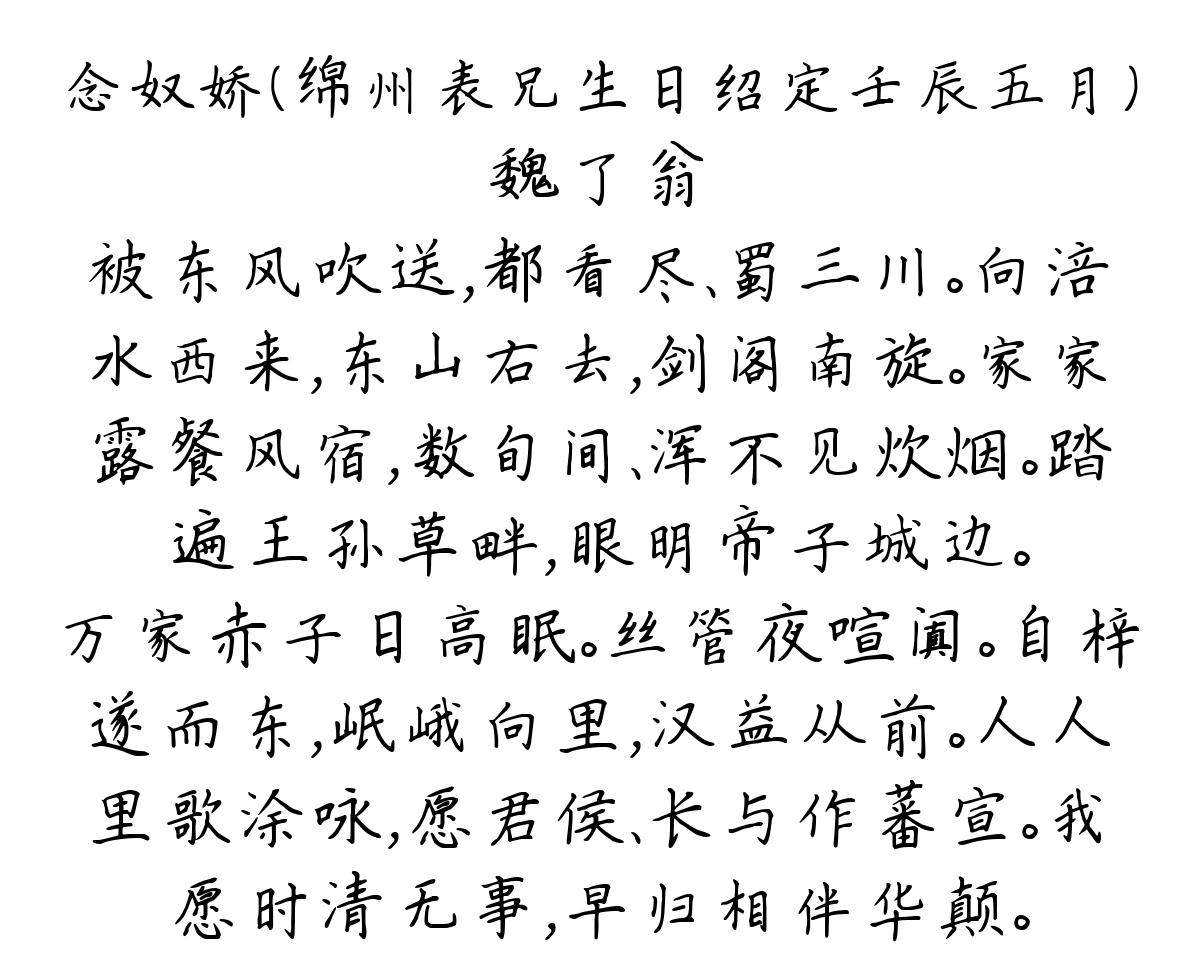 念奴娇(绵州表兄生日绍定壬辰五月)
魏了翁
被东风吹送,都看尽、蜀三川。向涪
水西来,东山右去,剑阁南旋。家家
露餐风宿,数旬间、浑不见炊烟。踏
遍王孙草畔,眼明帝子城边。
万家赤子日高眠。丝管夜喧阗。自梓
遂而东,岷峨向里,汉益从前。人人
里歌涂咏,愿君侯、长与作蕃宣。我
愿时清无事,早归相伴华颠。